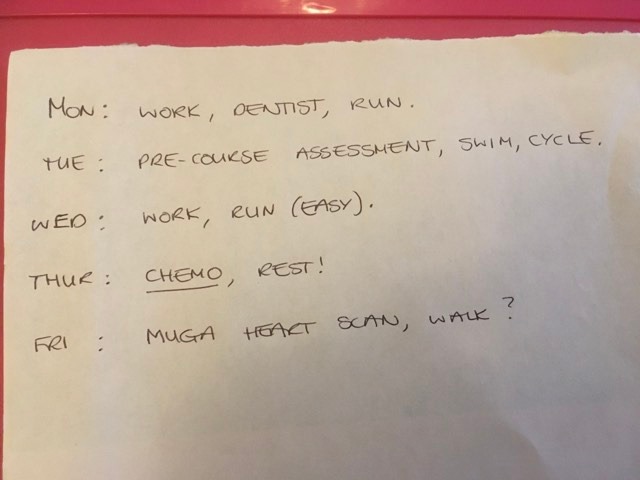 MON: WORK, DENTIST, RUN.
TUE: PRE-COURSE ASSESSMENT, SWIM, CYCLE.
WED: WORK, RUN (EASY).
THUR: CHEMO, REST!
FRI: MUGA HEART SCAN, WALK?